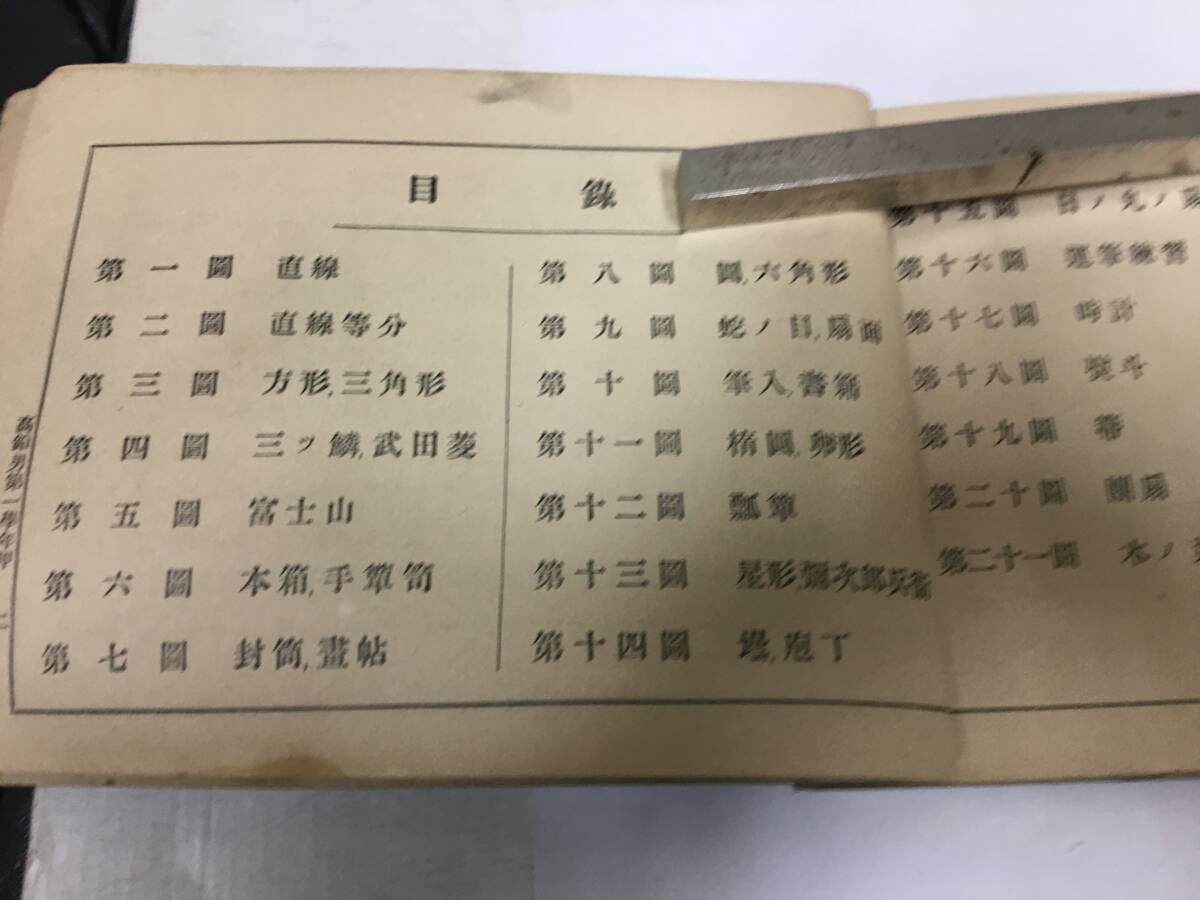 目錄
第一圖 直線
第二圖 直線等分
第三圖 方形,三角形
第四圖 三ツ鱗,武田菱
第五圖 富士山
第六圖 本箱,手簞笥
第七圖 封筒,畫帖
第八圖 圓,六角形
第九圖 蛇ノ目,扇面
第十圖 筆入,書籍
第十一圖 楕圓,卵形
第十二圖 瓢簞
第十三圖 星形,彌次郎兵衞
第十四圖 庖丁
第十五圖 日ノ丸ノ扇
第十六圖 運筆練習
第十七圖 時計
第十八圖 熨斗
第十九圖
第二十圖
第二十一圖 木ノ
男第一學年甲 二